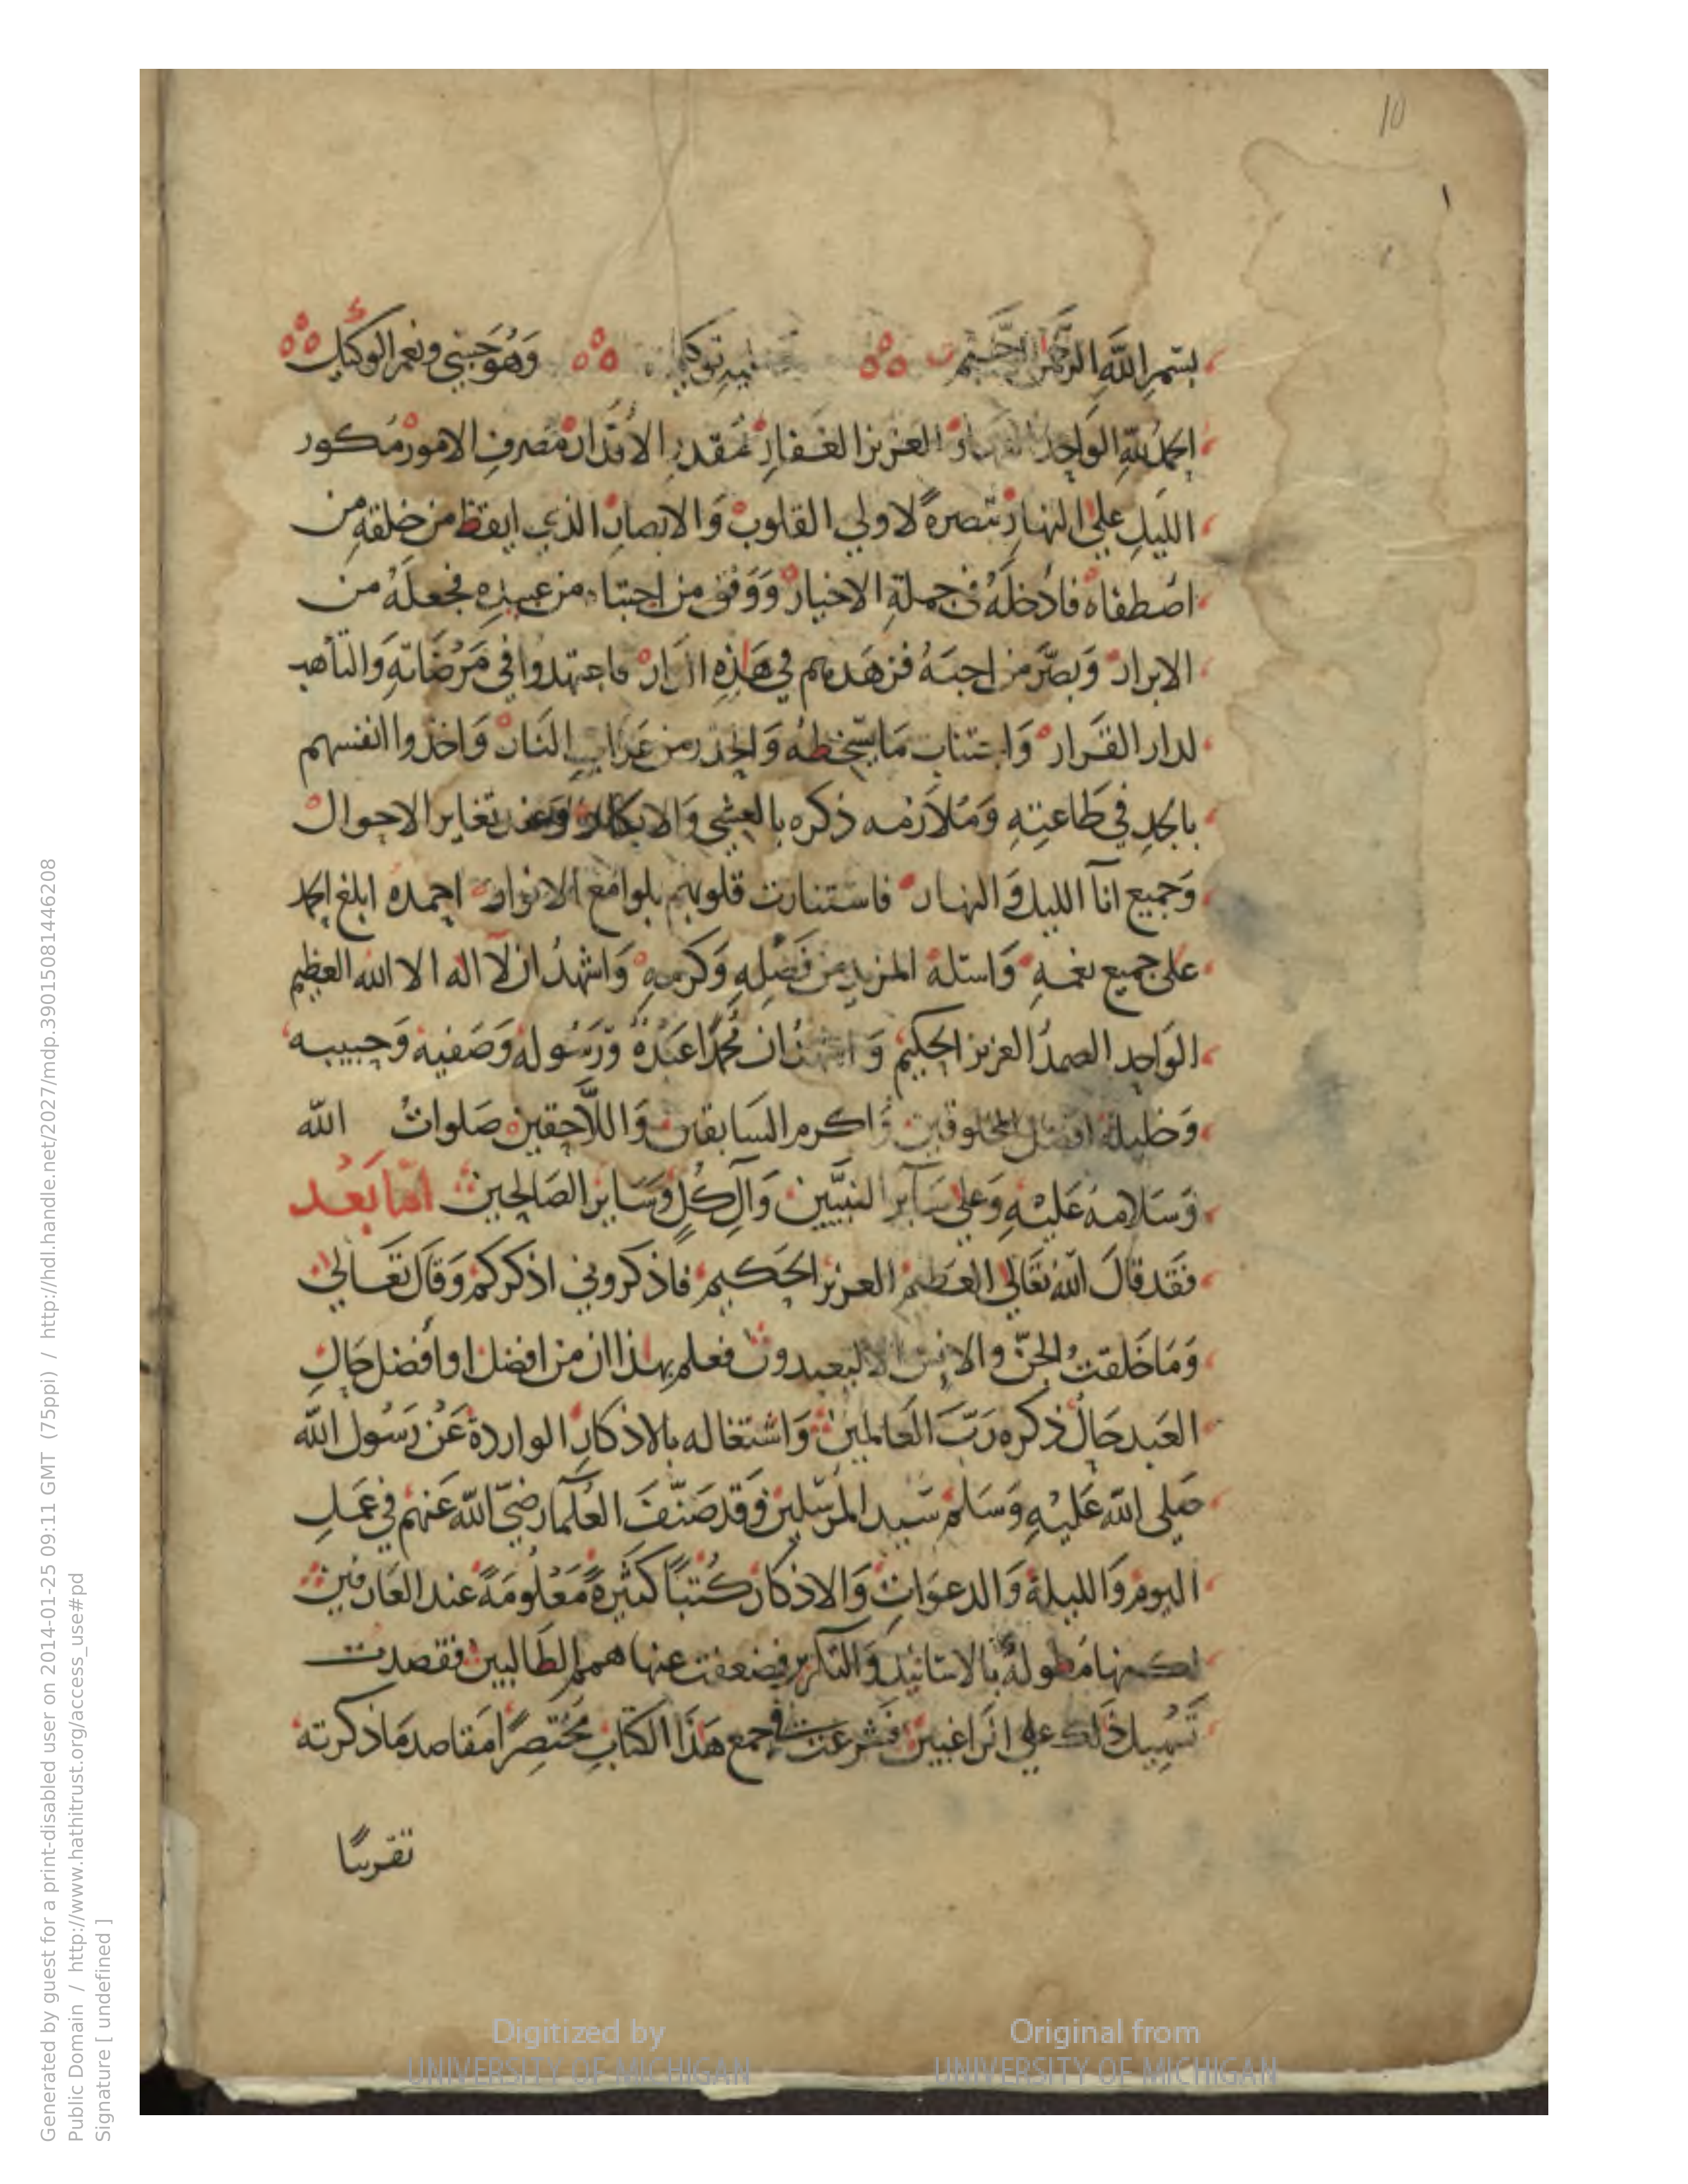 10
بسم الله الرحمن الرحيم توكلي وهو حسبي ونعم الوكيل
الحمد لله الواحد القهار العزيز الغفار مقدر الاقدار مصرف الامور مكور
الليل علي النهار تبصرة لاولي القلوب والابصار الذي ايقظ من خلقه من
اصطفاه فادخله في جملة الاخيار ووفق من اجتباه من عبيده فجعله من
الابرار وبصر من احبه فزهدهم في هذه الدار فاجتهدوا في مرضاته والتأهب
لدار القرار واجتناب ما يسخطه والحذر من عذاب النار واخذوا انفسهم
بالجد في طاعته وملازمه ذكره بالعشي والابكار وعند تغاير الاحوال
وجميع انآ الليل والنهار فاستنارت قلوبهم بلوامع الانوار احمده ابلغ الحمد
على جميع نعمه واسئله المزيد من فضله وكرمه واشهد ان لا اله الا الله العظيم
الواحد الصمد العزيز الحكيم واشهد ان محمدا عبده ورسوله وصفيه وحبيبه
وخليله افضل المخلوقين واكرم السابقين واللاحقين صلوات الله
وسلامه عليه وعلي سآير النبيين وآل كل وساير الصالحين اما بعد
فقد قال الله تعالي العظيم العزيز الحكيم فاذكروني اذكركم وقال تعالي
وما خلقت الجن والانس الا ليعبدون فعلم بهذا ان من افضل او افضل حال
العبد حال ذكره رب العالمين واشتغاله بالاذكار الواردة عن رسول الله
صلى الله عليه وسلم سيد المرسلين وقد صنف العلمآ رضي الله عنهم في عمل
اليوم والليلة والدعوات والاذكار كتبا كثيرة معلومة عند العارفين
لكنها مطولة بالاسانيد والتكرير فضعفت عنها همم الطالبين فقصدت
تسهيل ذلك علي الراغبين فشرعت في جمع هذا الكتاب مختصرا مقاصد ما ذكرته
تقريبا
Digitized by
UNIVERSITY OF MICHIGAN
Original from
UNIVERSITY OF MICHIGAN
Generated by guest for a print-disabled user on 2014-01-25 09:11 GMT (75ppi) / http://hdl.handle.net/2027/mdp.39015081446208
Public Domain / http://www.hathitrust.org/access_use#pd
Signature [ undefined ]